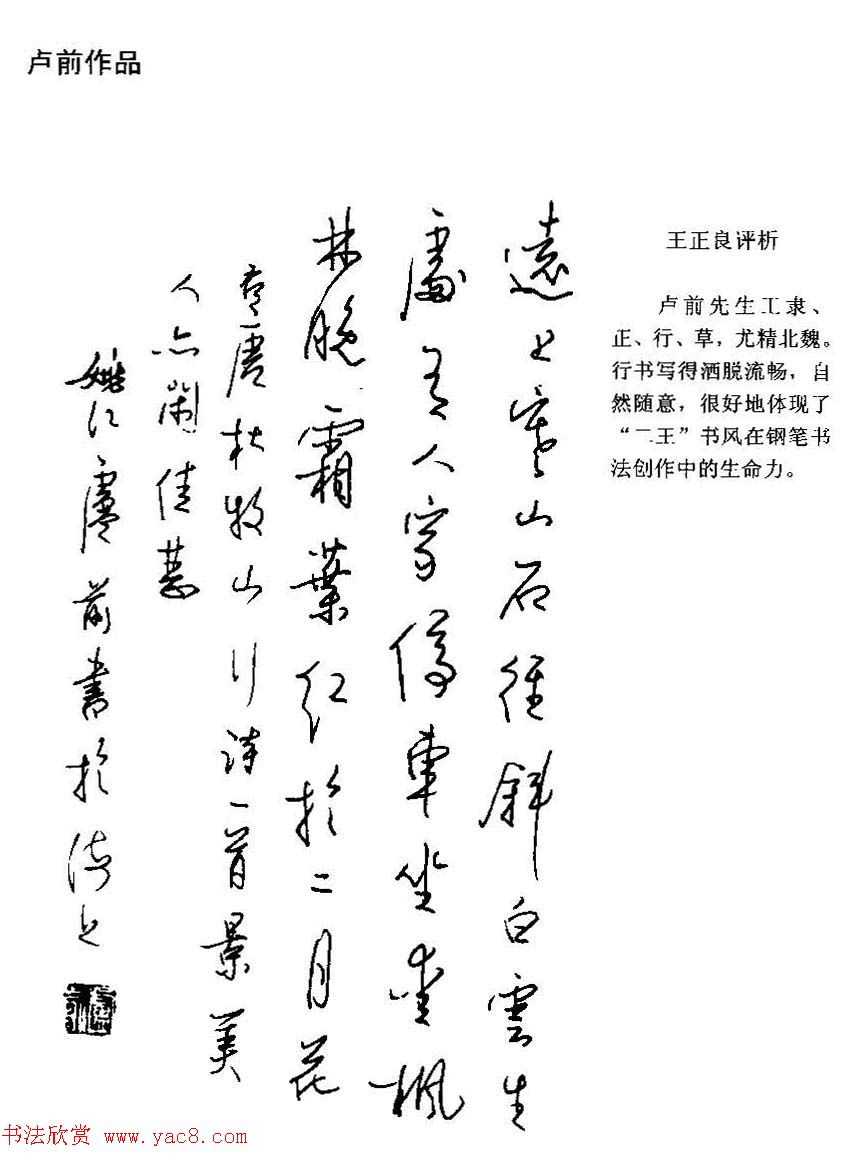 卢前作品
王正良评析
卢前先生工隶、
正、行、草，尤精北魏。
行书写得洒脱流畅，自
然随意，很好地体现了
“二王”书风在钢笔书
法创作中的生命力。
遠上寒山石徑斜白雲生
處有人家停車坐愛楓
林晚霜葉紅於二月花
唐杜牧山行詩一首景美
人亦佳
姚江盧前書於滬上
书法欣赏 www.yac8.com